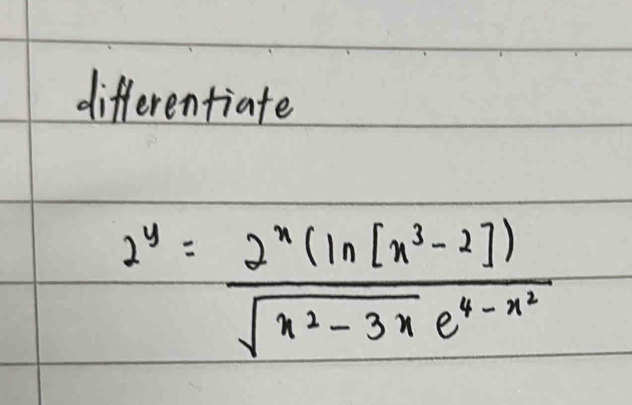 differentiate
2^y = \frac{2^x (ln [x^3 - 2])}{\sqrt{x^2 - 3x} e^{4 - x^2}}